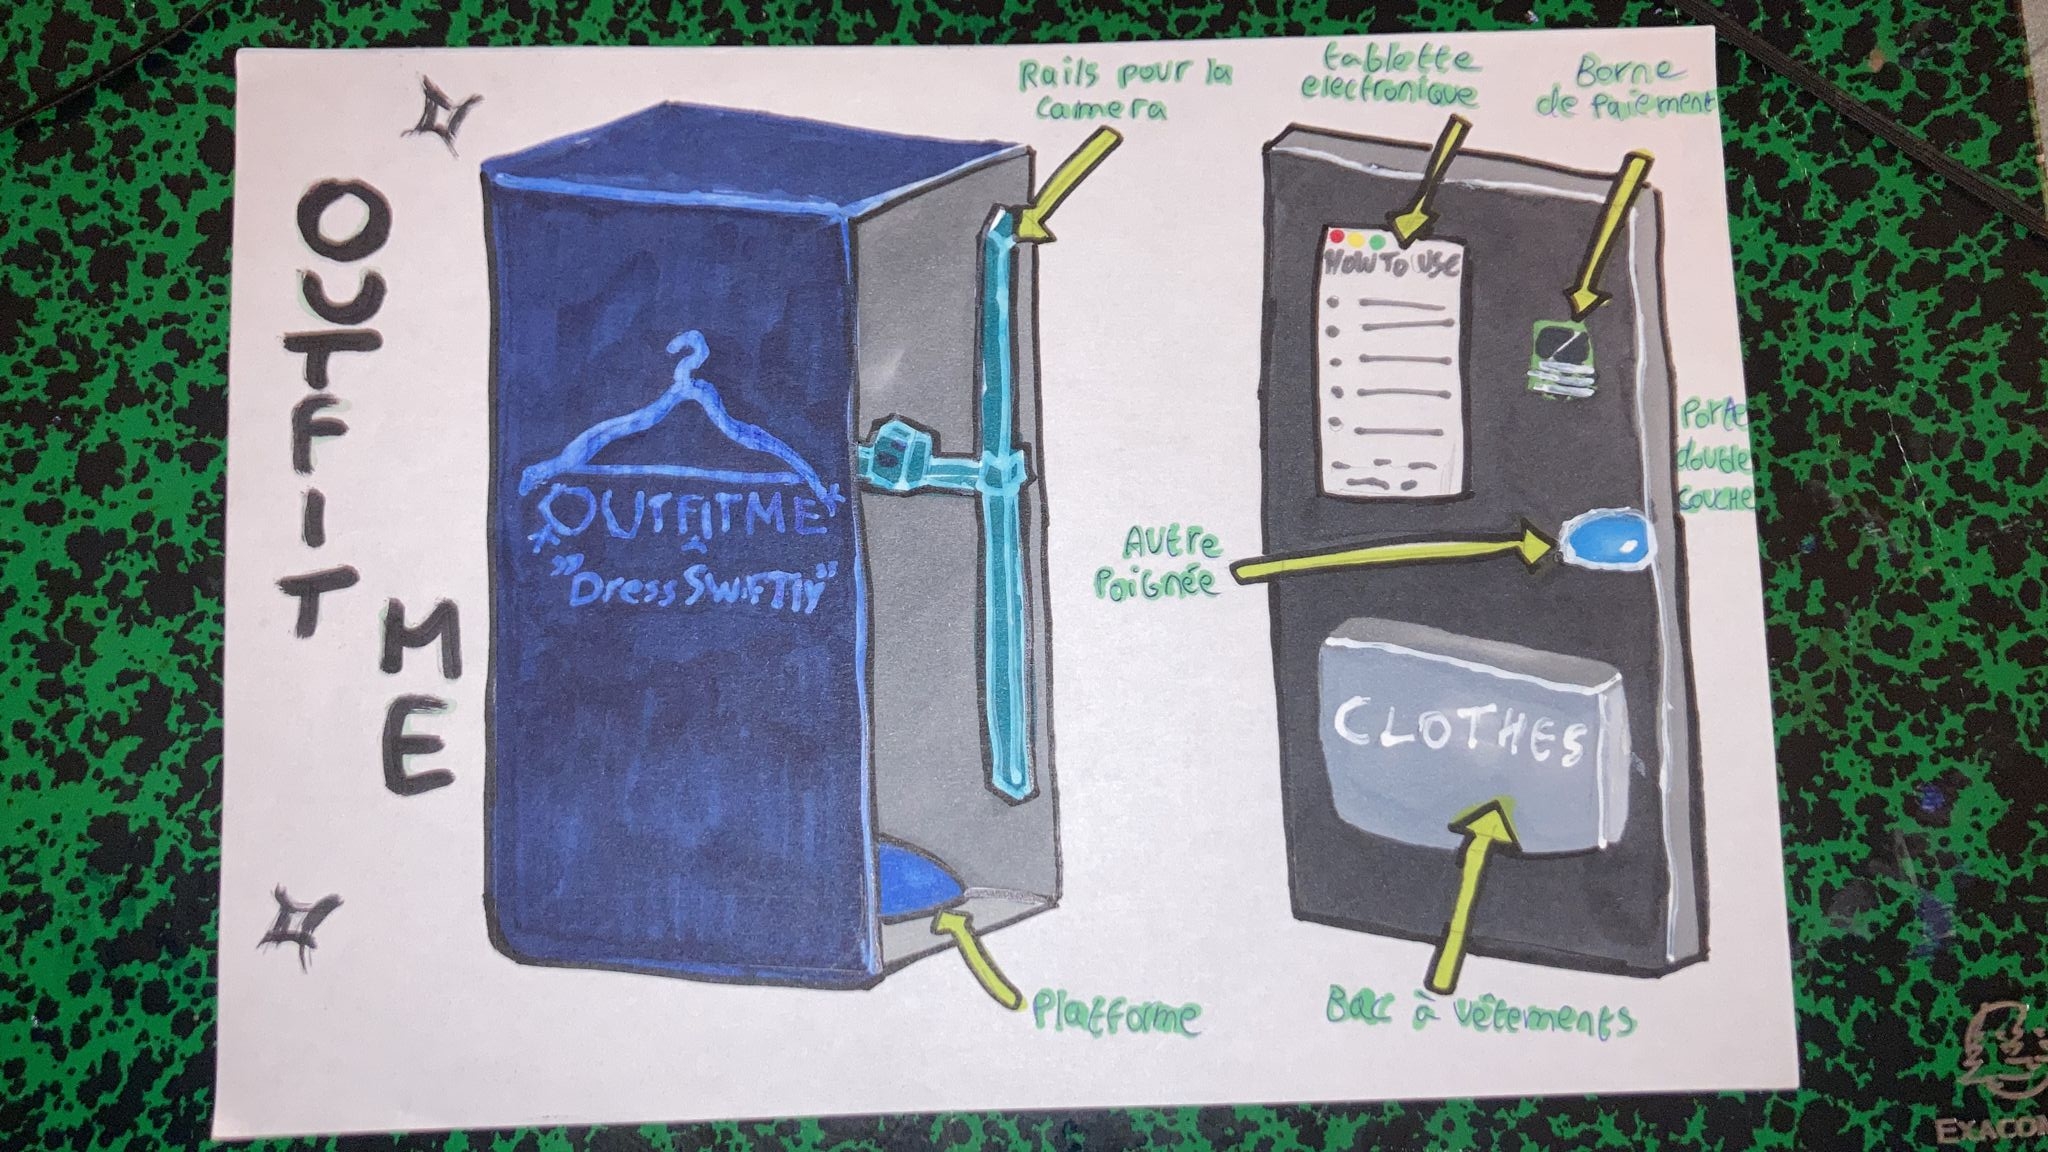 OUTFIT
ME
OUTFITME
"Dress SwiFTly"
Rails pour la
camera
Platforme
tablette
electronique
Borne
de paiement
HOW TO USE
Porte
double
couche
Autre
Poignée
CLOTHES
Bac à vêtements
EXACOM